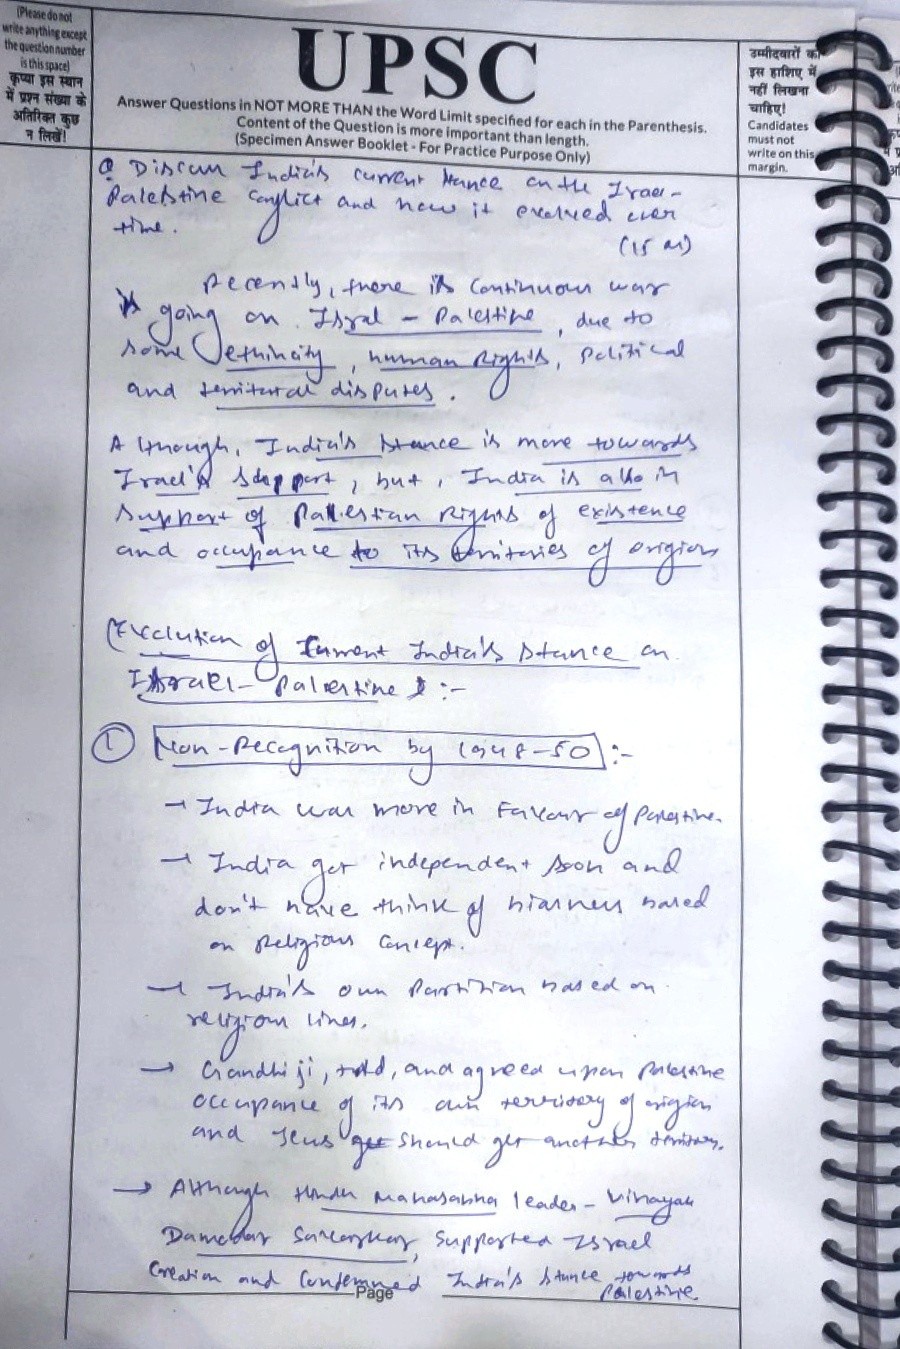 (Please do not
write anything except
the question number
is this space)
कृप्या इस स्थान
में प्रश्न संख्या के
अतिरिक्त कुछ
न लिखें!
UPSC
Answer Questions in NOT MORE THAN the Word Limit specified for each in the Parenthesis.
Content of the Question is more important than length.
(Specimen Answer Booklet - For Practice Purpose Only)
उम्मीदवारों को
इस हाशिए में
नहीं लिखना
चाहिए!
Candidates
must not
write on this
margin.
Q Discuss India's current stance on the Israel-
Palestine Conflict and how it evolved over
time.
(15 m)
Recently, there is continuous war
is going on Isral - Palestine, due to
some ethincity, human Rights, Political
and territorial disputes.
Although, India's stance is more towards
Israel's support, but, India is also in
support of Pallestian Rights of existence
and occupance to its territories of origion
Evolution of Current India's stance on
Israel - Palestine :-
① Non-Recognition by 1948-50 :-
→ India was more in Favour of Palestine.
→ India got independent soon and
don't have think of biasness based
on Religious Concept.
→ India's own Partition based on
religious lines.
→ Gandhi ji, told, and agreed upon Palestine
occupance of its own territory of origion
and Jews get should get another territory.
→ Although Hindu Mahasabha leader - Vinayak
Damodar Savarkar, Supported Israel
Creation and Condemned India's stance towards
Palestine
Page